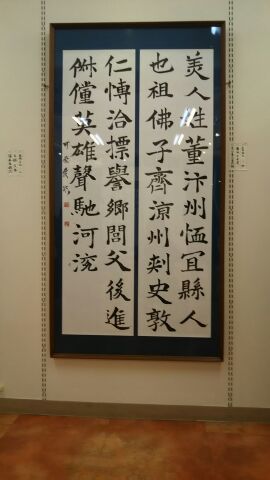 美人姓董汴州恤冝縣人
也祖佛子齊涼州刾史敦
仁愽洽摽譽鄉閭父後進
俶儻英雄聲馳河渷